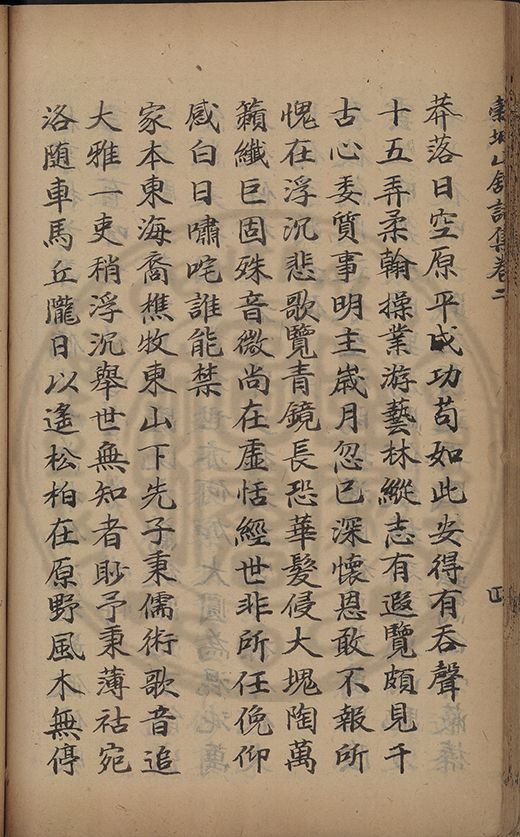 山舍詩集卷二
四
莽落日空原平成功苟如此安得有吞聲
十五弄柔翰操業游藝林縱志有遐覽頗見千
古心委質事明主歲月忽已深懷恩敢不報所
愧在浮沉悲歌覽青鏡長恐華髮侵大塊陶萬
籟纖巨固殊音微尚在虛恬經世非所任俛仰
感白日嘯咤誰能禁
家本東海裔樵牧東山下先子秉儒術歌音追
大雅一吏稍浮沉舉世無知者眇予秉薄祜宛
洛随車馬丘隴日以遙松柏在原野風木無停